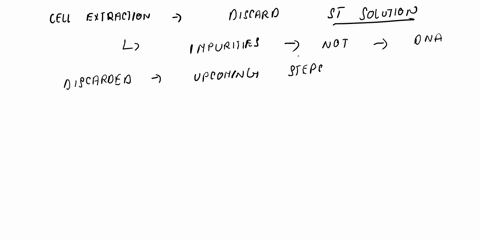 CELL EXTRACTION → DISCARD ST SOLUTION
↳ IMPURITIES → NOT → DNA
DISCARDED → UPCOMING STEPS